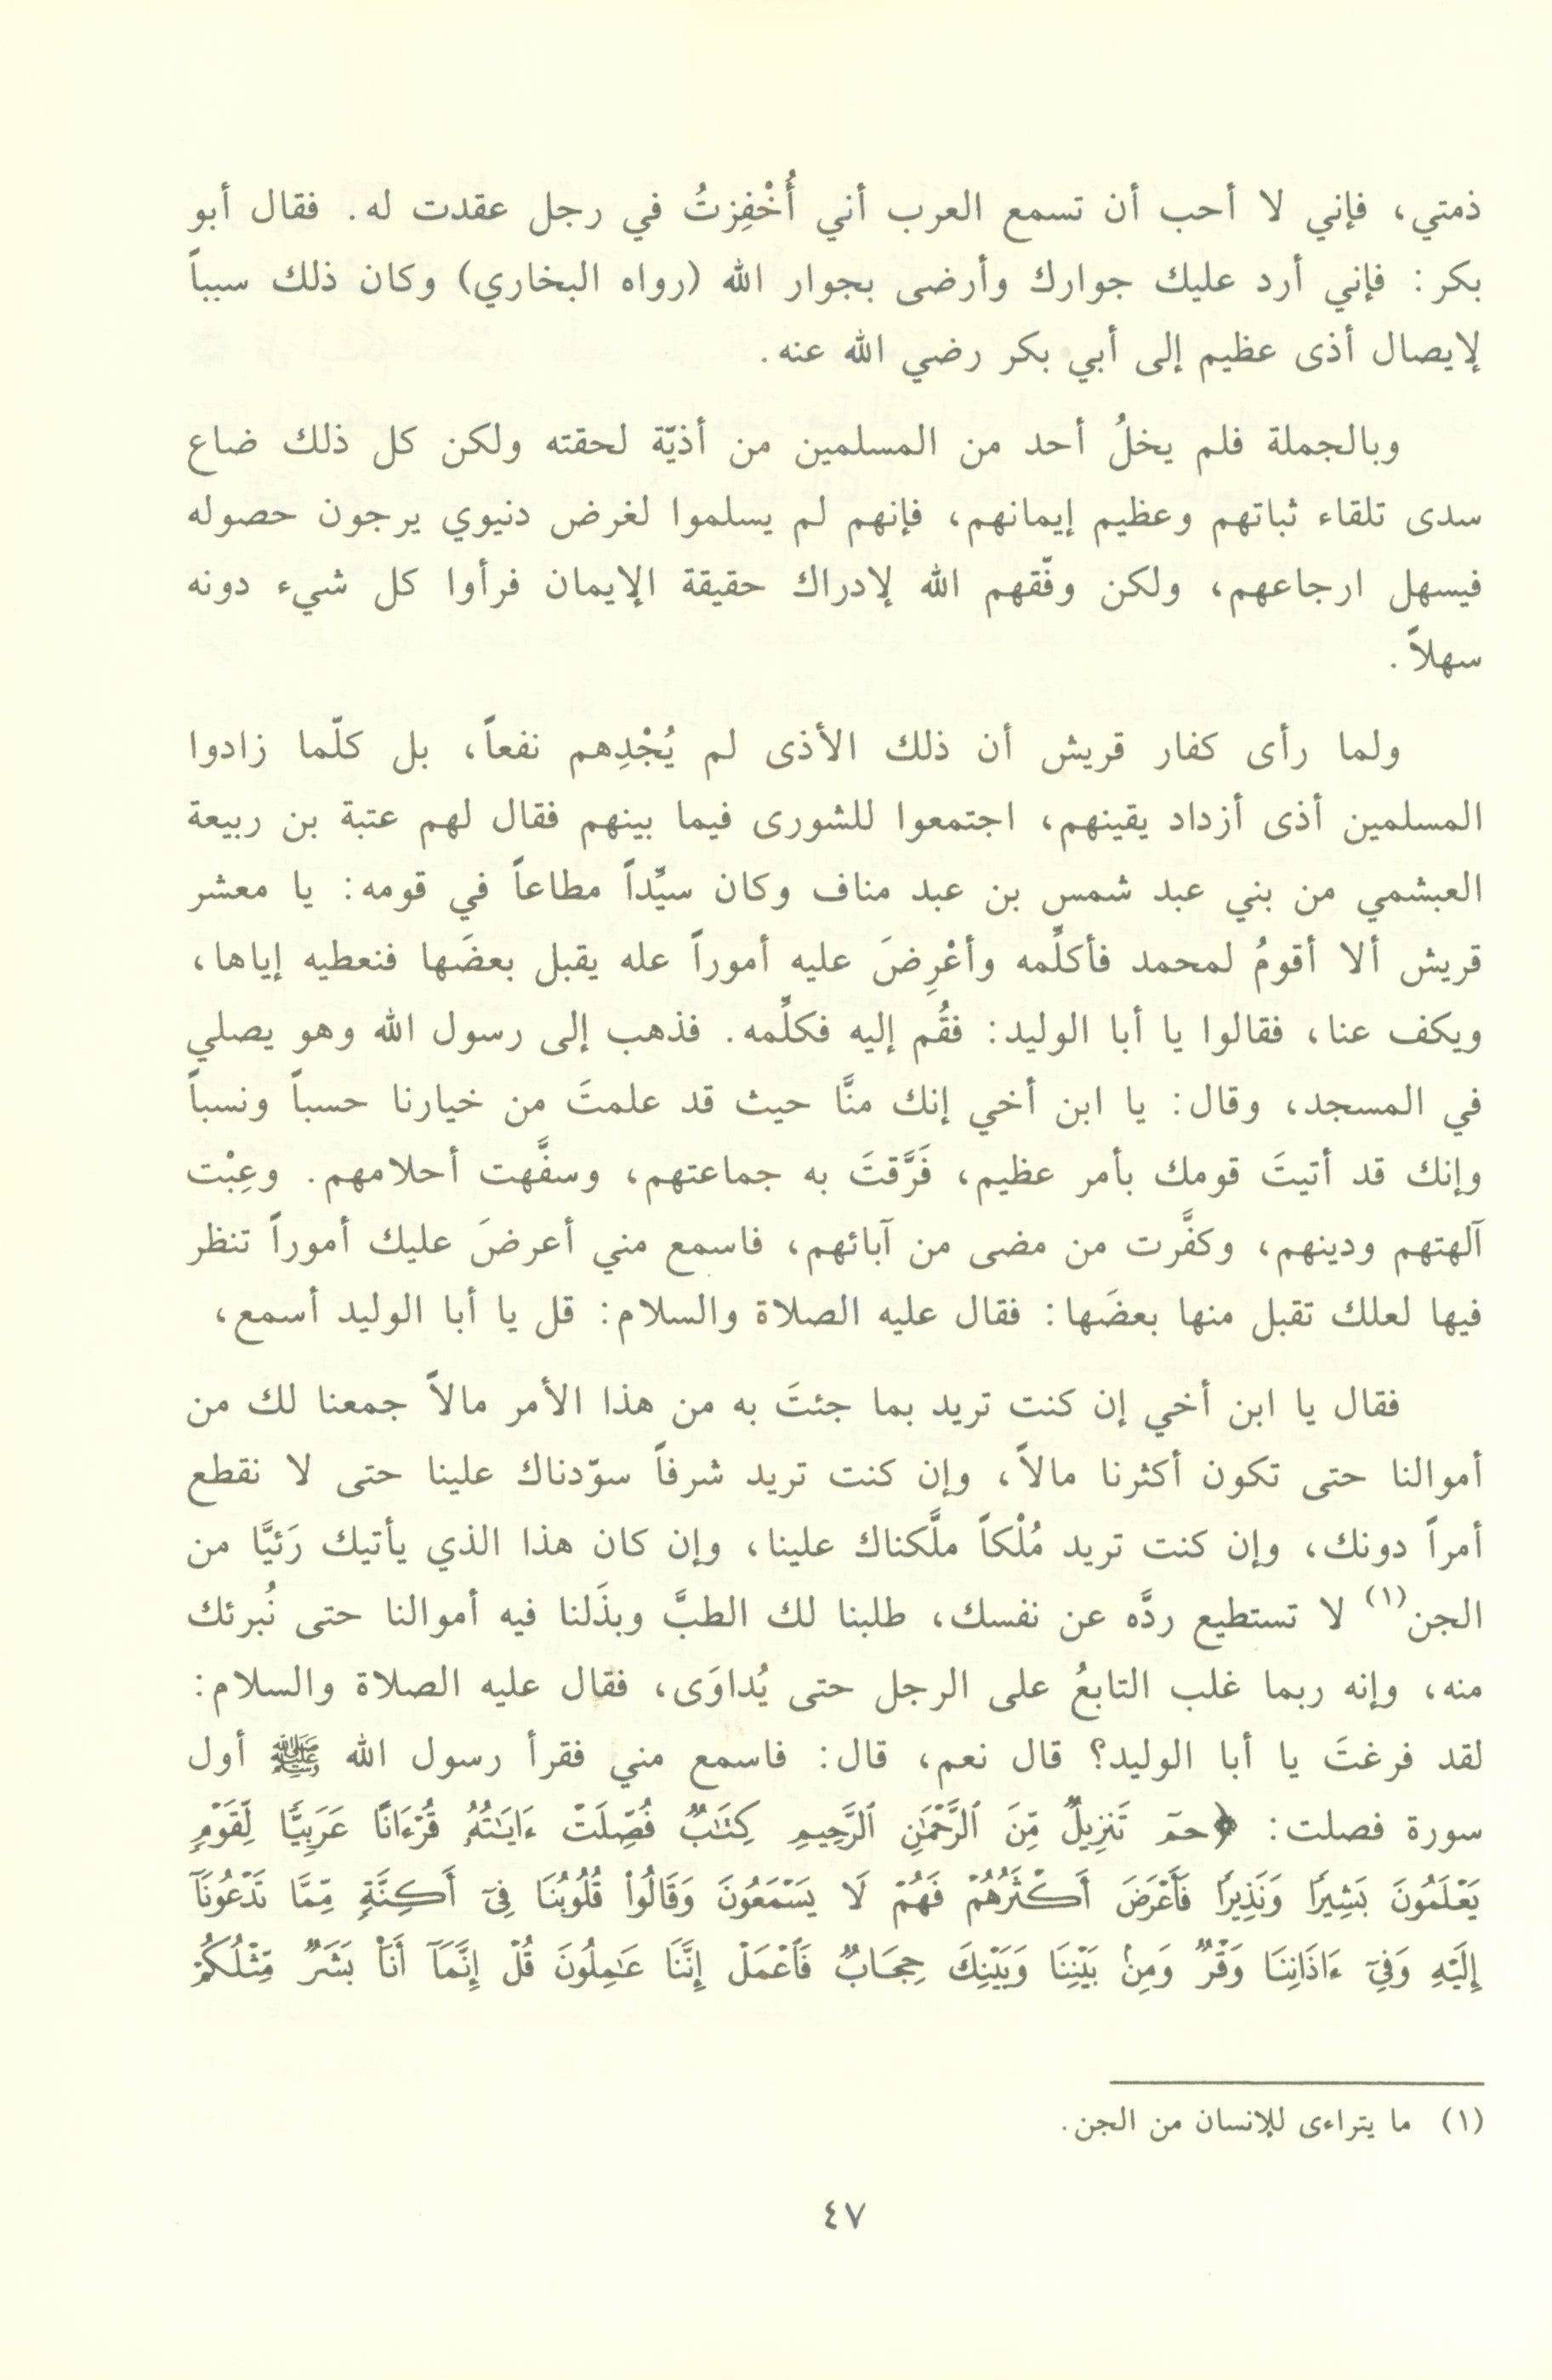 ذمتي، فإني لا أحب أن تسمع العرب أني أُخْفِزتُ في رجل عقدت له. فقال أبو
بكر: فإني أرد عليك جوارك وأرضى بجوار الله (رواه البخاري) وكان ذلك سبباً
لإيصال أذى عظيم إلى أبي بكر رضي الله عنه.
وبالجملة فلم يخلُ أحد من المسلمين من أذيّة لحقته ولكن كل ذلك ضاع
سدى تلقاء ثباتهم وعظيم إيمانهم، فإنهم لم يسلموا لغرض دنيوي يرجون حصوله
فيسهل ارجاعهم، ولكن وفّقهم الله لإدراك حقيقة الإيمان فرأوا كل شيء دونه
سهلاً.
ولما رأى كفار قريش أن ذلك الأذى لم يُجْدِهم نفعاً، بل كلّما زادوا
المسلمين أذى أزداد يقينهم، اجتمعوا للشورى فيما بينهم فقال لهم عتبة بن ربيعة
العبشمي من بني عبد شمس بن عبد مناف وكان سيِّداً مطاعاً في قومه: يا معشر
قريش ألا أقومُ لمحمد فأكلِّمه وأعْرِضَ عليه أموراً عله يقبل بعضَها فنعطيه إياها،
ويكف عنا، فقالوا يا أبا الوليد: فقُم إليه فكلِّمه. فذهب إلى رسول الله وهو يصلي
في المسجد، وقال: يا ابن أخي إنك منَّا حيث قد علمتَ من خيارنا حسباً ونسباً
وإنك قد أتيتَ قومك بأمر عظيم، فَرَّقتَ به جماعتهم، وسفَّهت أحلامهم. وعِبْت
آلهتهم ودينهم، وكفَّرت من مضى من آبائهم، فاسمع مني أعرضَ عليك أموراً تنظر
فيها لعلك تقبل منها بعضَها: فقال عليه الصلاة والسلام: قل يا أبا الوليد أسمع،
فقال يا ابن أخي إن كنت تريد بما جئتَ به من هذا الأمر مالاً جمعنا لك من
أموالنا حتى تكون أكثرنا مالاً، وإن كنت تريد شرفاً سوّدناك علينا حتى لا نقطع
أمراً دونك، وإن كنت تريد مُلْكاً ملَّكناك علينا، وإن كان هذا الذي يأتيك رَئيَّا من
الجن(١) لا تستطيع ردَّه عن نفسك، طلبنا لك الطبَّ وبذَلنا فيه أموالنا حتى نُبرئك
منه، وإنه ربما غلب التابعُ على الرجل حتى يُداوَى، فقال عليه الصلاة والسلام:
لقد فرغتَ يا أبا الوليد؟ قال نعم، قال: فاسمع مني فقرأ رسول الله ﷺ أول
سورة فصلت: ﴿حمٓ تَنزِيلٌ مِّنَ ٱلرَّحْمَٰنِ ٱلرَّحِيمِ كِتَٰبٌ فُصِّلَتْ ءَايَٰتُهُۥ قُرْءَانًا عَرَبِيًّا لِّقَوْمٍ
يَعْلَمُونَ بَشِيرًا وَنَذِيرًا فَأَعْرَضَ أَكْثَرُهُمْ فَهُمْ لَا يَسْمَعُونَ وَقَالُواْ قُلُوبُنَا فِىٓ أَكِنَّةٍ مِّمَّا تَدْعُونَآ
إِلَيْهِ وَفِىٓ ءَاذَانِنَا وَقْرٌ وَمِنۢ بَيْنِنَا وَبَيْنِكَ حِجَابٌ فَٱعْمَلْ إِنَّنَا عَٰمِلُونَ قُلْ إِنَّمَآ أَنَا۠ بَشَرٌ مِّثْلُكُمْ
(١) ما يتراءى للإنسان من الجن.
٤٧